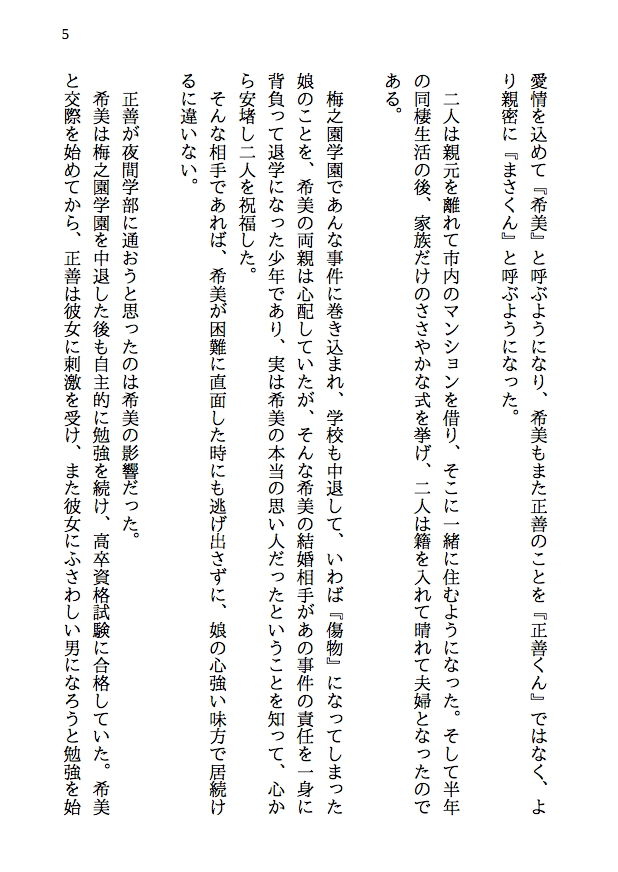 5
愛情を込めて『希美』と呼ぶようになり、希美もまた正善のことを『正善くん』ではなく、よ
り親密に『まさくん』と呼ぶようになった。
二人は親元を離れて市内のマンションを借り、そこに一緒に住むようになった。そして半年
の同棲生活の後、家族だけのささやかな式を挙げ、二人は籍を入れて晴れて夫婦となったので
ある。
梅之園学園であんな事件に巻き込まれ、学校も中退して、いわば『傷物』になってしまった
娘のことを、希美の両親は心配していたが、そんな希美の結婚相手があの事件の責任を一身に
背負って退学になった少年であり、実は希美の本当の思い人だったということを知って、心か
ら安堵し二人を祝福した。
そんな相手であれば、希美が困難に直面した時にも逃げ出さずに、娘の心強い味方で居続け
るに違いない。
正善が夜間学部に通おうと思ったのは希美の影響だった。
希美は梅之園学園を中退した後も自主的に勉強を続け、高卒資格試験に合格していた。希美
と交際を始めてから、正善は彼女に刺激を受け、また彼女にふさわしい男になろうと勉強を始